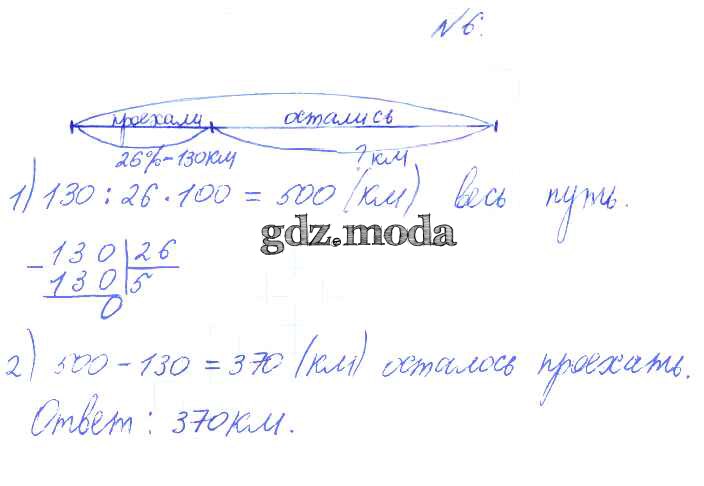 №6.
проехали остались
26%-130км ? км
1) 130 : 26 · 100 = 500 (км) весь путь.
gdz.moda
-130 26
130 5
0
2) 500 - 130 = 370 (км) осталось проехать.
Ответ : 370км.